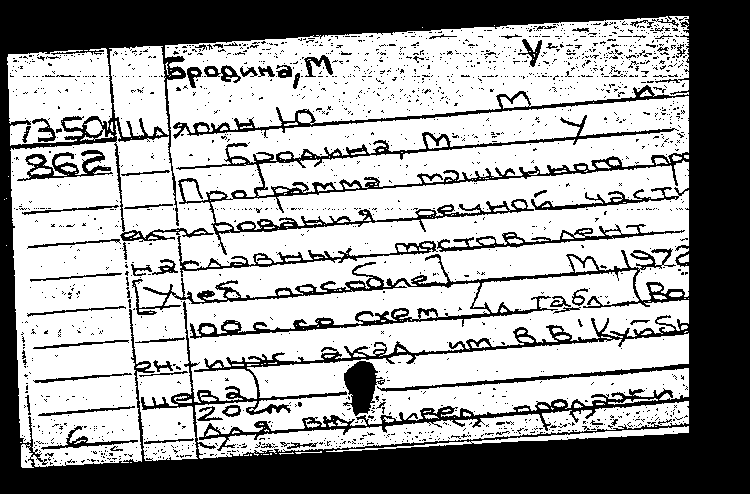 Бродина, М У
73-50 Шляпин, Ю М п
862 Бродина, М У
Программа машинного про
ектирования речной части
наславных мостов-лент
[Учеб. пособие]. М., 1972
100 с. со схем. Ил. табл. (Во
ен.-инж. акад. им. В.В. Куйбы
шева)
20 см.
6 Для внутривед. продажи.